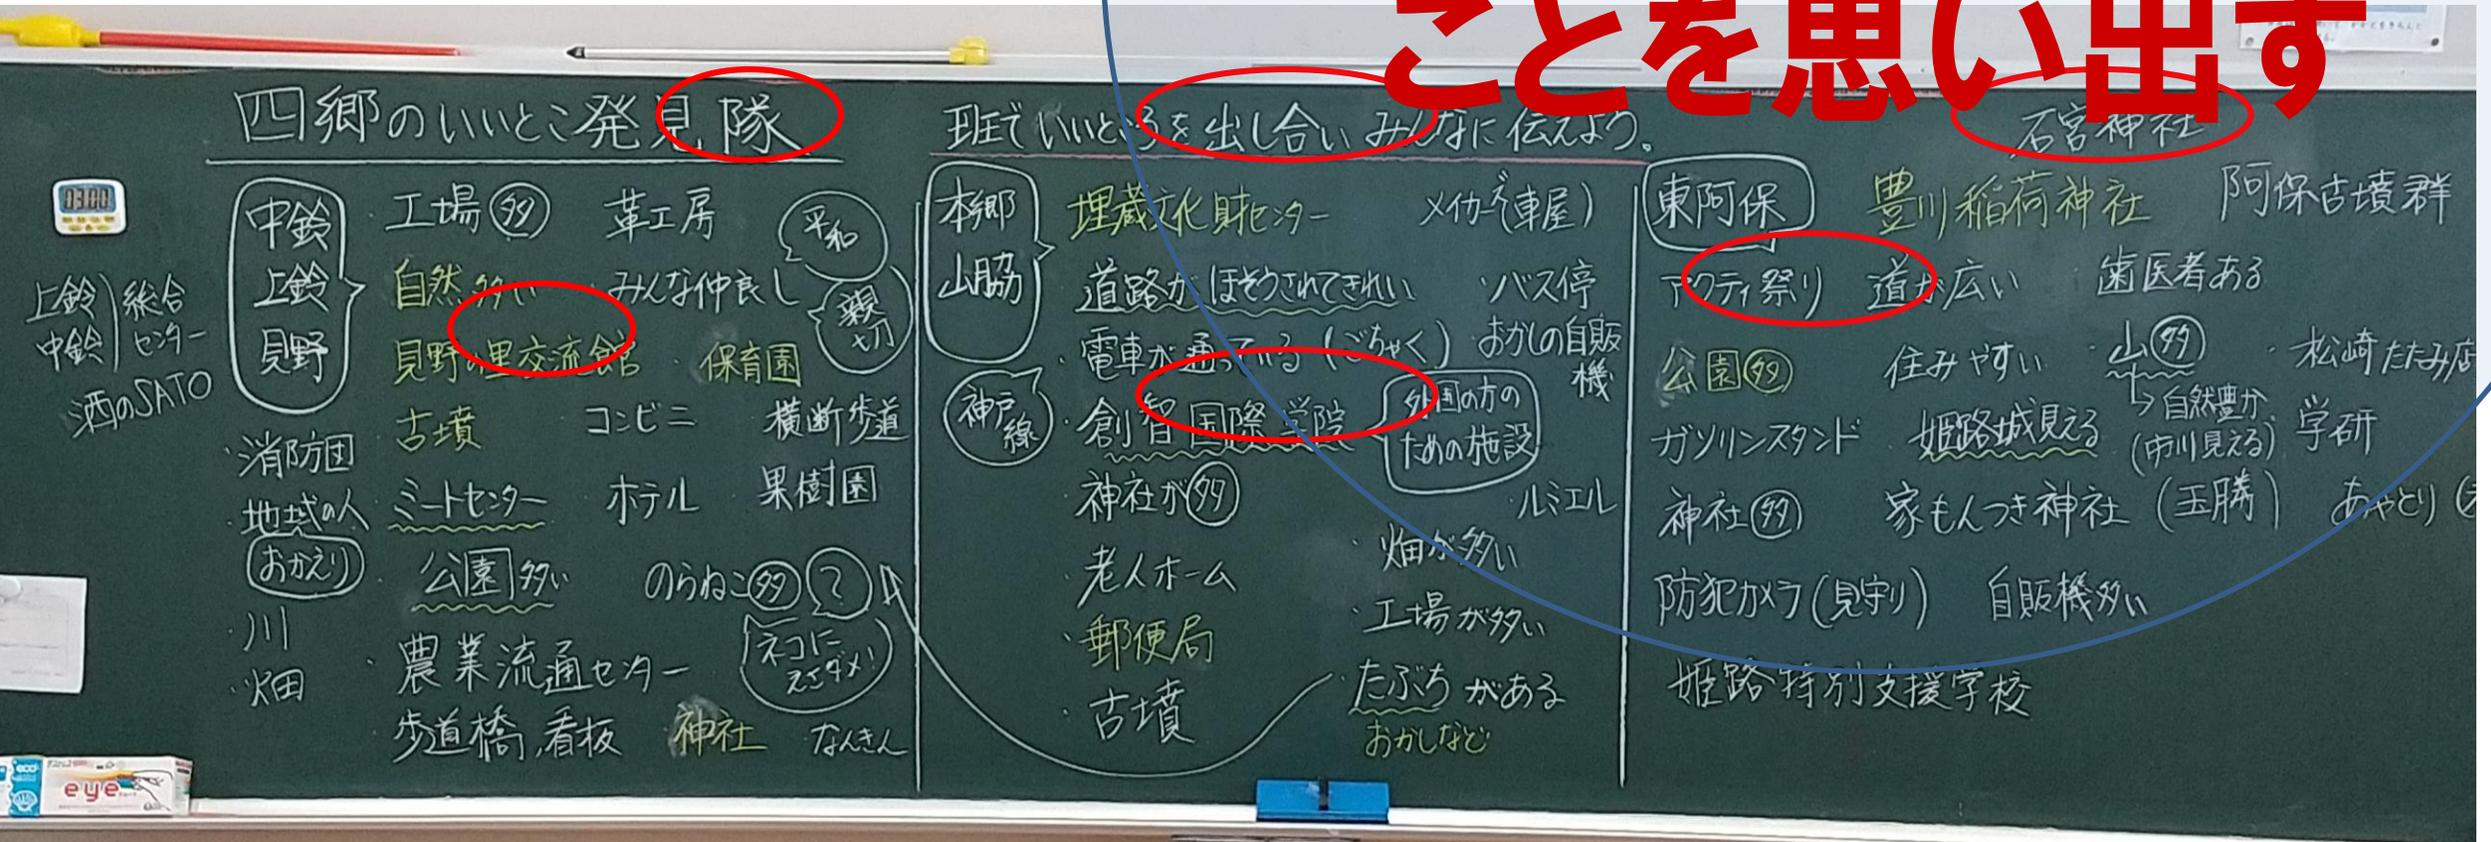 ことを思い出す
四郷のいいとこ発見隊
班でいいところを出し合いみんなに伝えよう。
石宮神社
上鈴
中鈴
総合
センター
酒のSATO
中鈴
上鈴
見野
・工場多
革工房
平和
自然多い
・みんな仲良し
親切
見野の里交流館
・保育園
・消防団
古墳
コンビニ
横断歩道
・地域の人
おかえり
・ミートセンター
ホテル
果樹園
・公園多い
のらねこ多
?
・川
ネコに
えさダメ!
・畑
・農業流通センター
歩道橋,看板
神社
なんきん
本郷
山脇
埋蔵文化財センター
道路がほそうされてきれい
・バス停
・電車が通っている(ごちゃく)
おかしの自販機
神戸線
創智国際学院
外国の方の
ための施設
・神社が多
・ルミエル
・老人ホーム
・畑が多い
・郵便局
・工場が多い
・古墳
・たぶちがある
おかしなど
東阿保
豊川稲荷神社
阿保古墳群
アクティ祭り
道が広い
歯医者ある
公園多
住みやすい
・山多
・松崎たたみ店
→自然豊か
(市川見える)
ガソリンスタンド
姫路城見える
学研
神社多
家もんつき神社
(玉勝)
あやとり
防犯カメラ(見守り)
自販機多い
姫路特別支援学校
eye